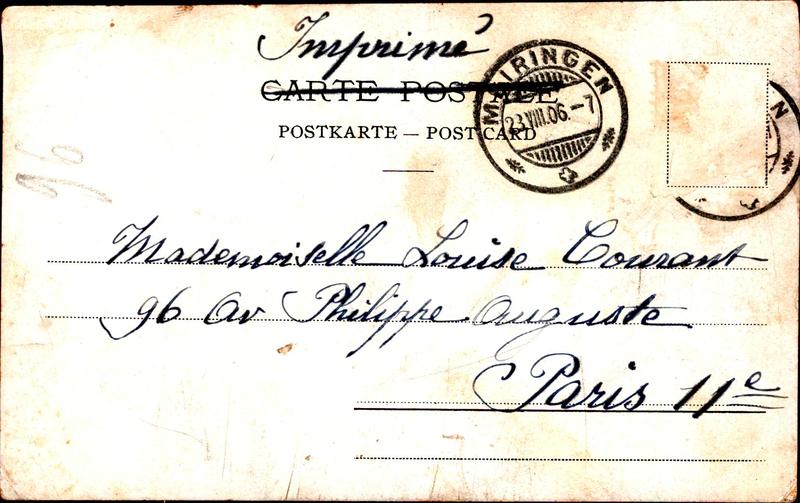 Imprimé
CARTE POSTALE
MEIRINGEN
23.VIII.06.-7
POSTKARTE — POST CARD
N
96
Mademoiselle Louise Courant
96 Av Philippe Auguste
Paris 11e